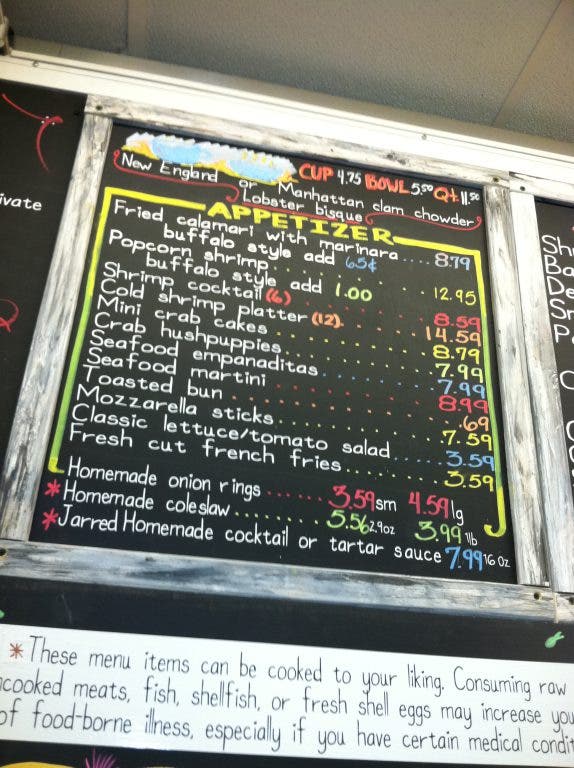 CUP 4.75 BOWL 5.50 Qt. 11.50
New England or Manhattan clam chowder
Lobster bisque
APPETIZER
Fried calamari with marinara.... 8.79
buffalo style add 65¢
Popcorn shrimp....... 12.95
buffalo style add 1.00
Shrimp cocktail (6)....... 8.59
Cold shrimp platter (12)....... 14.59
Mini crab cakes....... 8.79
Crab hushpuppies....... 7.99
Seafood empanaditas....... 7.99
Seafood martini....... 8.99
Toasted bun....... .69
Mozzarella sticks....... 7.59
Classic lettuce/tomato salad.... 3.59
Fresh cut french fries....... 3.59
Homemade onion rings...... 3.59 sm 4.59 lg
*Homemade coleslaw....... 5.56 2.9oz 3.99 1lb
*Jarred Homemade cocktail or tartar sauce 7.99 16 Oz
*These menu items can be cooked to your liking. Consuming raw
cooked meats, fish, shellfish, or fresh shell eggs may increase you
of food-borne illness, especially if you have certain medical condit
ivate
Sh
Ba
De